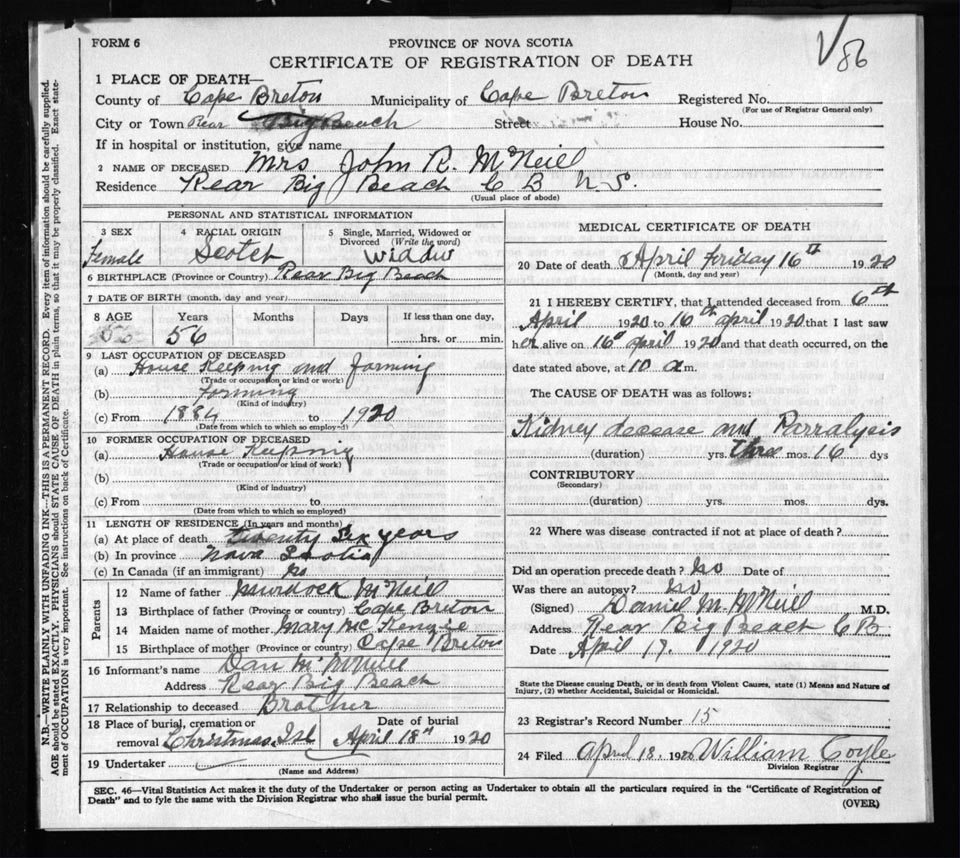 86
FORM 6
PROVINCE OF NOVA SCOTIA
CERTIFICATE OF REGISTRATION OF DEATH
N.B.—WRITE PLAINLY WITH UNFADING INK—THIS IS A PERMANENT RECORD. Every item of information should be carefully supplied.
AGE should be stated EXACTLY. PHYSICIANS should STATE CAUSE OF DEATH in plain terms, so that it may be properly classified. Exact state-
ment of OCCUPATION is very important. See instructions on back of Certificate.
1 PLACE OF DEATH—
County of Cape Breton Municipality of Cape Breton Registered No.
(For use of Registrar General only)
City or Town Rear Big Beach Street House No.
If in hospital or institution, give name
2 NAME OF DECEASED Mrs John R. McNeill
Residence Rear Big Beach C B N S.
(Usual place of abode)
PERSONAL AND STATISTICAL INFORMATION
3 SEX 4 RACIAL ORIGIN 5 Single, Married, Widowed or
Divorced (Write the word)
Female Scotch Widdw
6 BIRTHPLACE (Province or Country) Rear Big Beach
7 DATE OF BIRTH (month, day and year)
8 AGE Years Months Days If less than one day,
56 56 hrs. or min.
9 LAST OCCUPATION OF DECEASED
(a) House Keeping and Forming
(Trade or occupation or kind or work)
(b) Forming
(Kind of industry)
(c) From 1884 to 1920
(Date from which to which so employed)
10 FORMER OCCUPATION OF DECEASED
(a) House Keeping
(Trade or occupation or kind of work)
(b)
(Kind of industry)
(c) From to
(Date from which to which so employed)
11 LENGTH OF RESIDENCE (In years and months)
(a) At place of death twenty Six years
(b) In province Nova Scotia
(c) In Canada (if an immigrant) No
Parents
12 Name of father Murdock McNeill
13 Birthplace of father (Province or country) Cape Breton
14 Maiden name of mother Mary McKenzie
15 Birthplace of mother (Province or country) Cape Breton
16 Informant's name Dan M McNeill
Address Rear Big Beach
17 Relationship to deceased Brother
18 Place of burial, cremation or Date of burial
removal Christmas Isl April 18th 1920
19 Undertaker
(Name and Address)
MEDICAL CERTIFICATE OF DEATH
20 Date of death April Friday 16th 1920
(Month, day and year)
21 I HEREBY CERTIFY, that I attended deceased from 6th
April 1920 to 16th april 1920 that I last saw
her alive on 16th april 1920 and that death occurred, on the
date stated above, at 10 a.m.
The CAUSE OF DEATH was as follows:
Kidney decease and Parralysis
(duration) yrs. three mos. 16 dys
CONTRIBUTORY
(Secondary)
(duration) yrs. mos. dys.
22 Where was disease contracted if not at place of death?
Did an operation precede death? No Date of
Was there an autopsy? No
(Signed) Daniel M. McNeill M.D.
Address Rear Big Beach C B
Date April 17. 1920
State the Disease causing Death, or in death from Violent Causes, state (1) Means and Nature of
Injury, (2) whether Accidental, Suicidal or Homicidal.
23 Registrar's Record Number 15
24 Filed april 18, 1920 William Coyle
Division Registrar
SEC. 46—Vital Statistics Act makes it the duty of the Undertaker or person acting as Undertaker to obtain all the particulars required in the "Certificate of Registration of
Death" and to fyle the same with the Division Registrar who shall issue the burial permit.
(OVER)